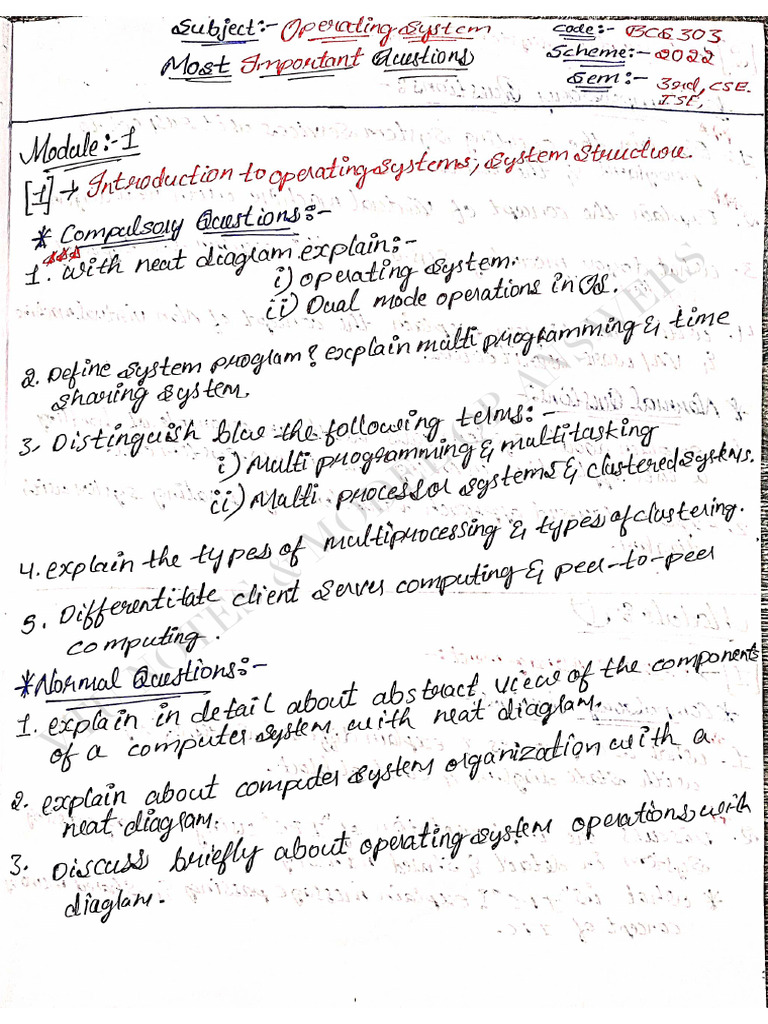 Subject:- Operating System Code:- BCS303
Most Important Questions Scheme:- 2022
Sem:- 3rd, CSE.
ISE,
Module:-1
[1] → Introduction to operating Systems, System Structure.
* Compulsory Questions:-
1. with neat diagram explain:-
i) operating System.
ii) Dual mode operations in OS.
2. Define System program? explain multi programming & time
sharing system.
3. Distinguish b/w the following terms:-
i) Multi programming & multitasking
ii) Multi processor systems & clustered systems.
4. explain the types of multiprocessing & types of clustering.
5. Differentitate client server computing & peer-to-peer
computing.
*Normal Questions:-
1. explain in detail about abstract view of the components
of a computer system with neat diagram.
2. explain about computer system organization with a
neat diagram.
3. Discuss briefly about operating system operations, with
diaglam.
NOTES & MODEL QP ANSWERS